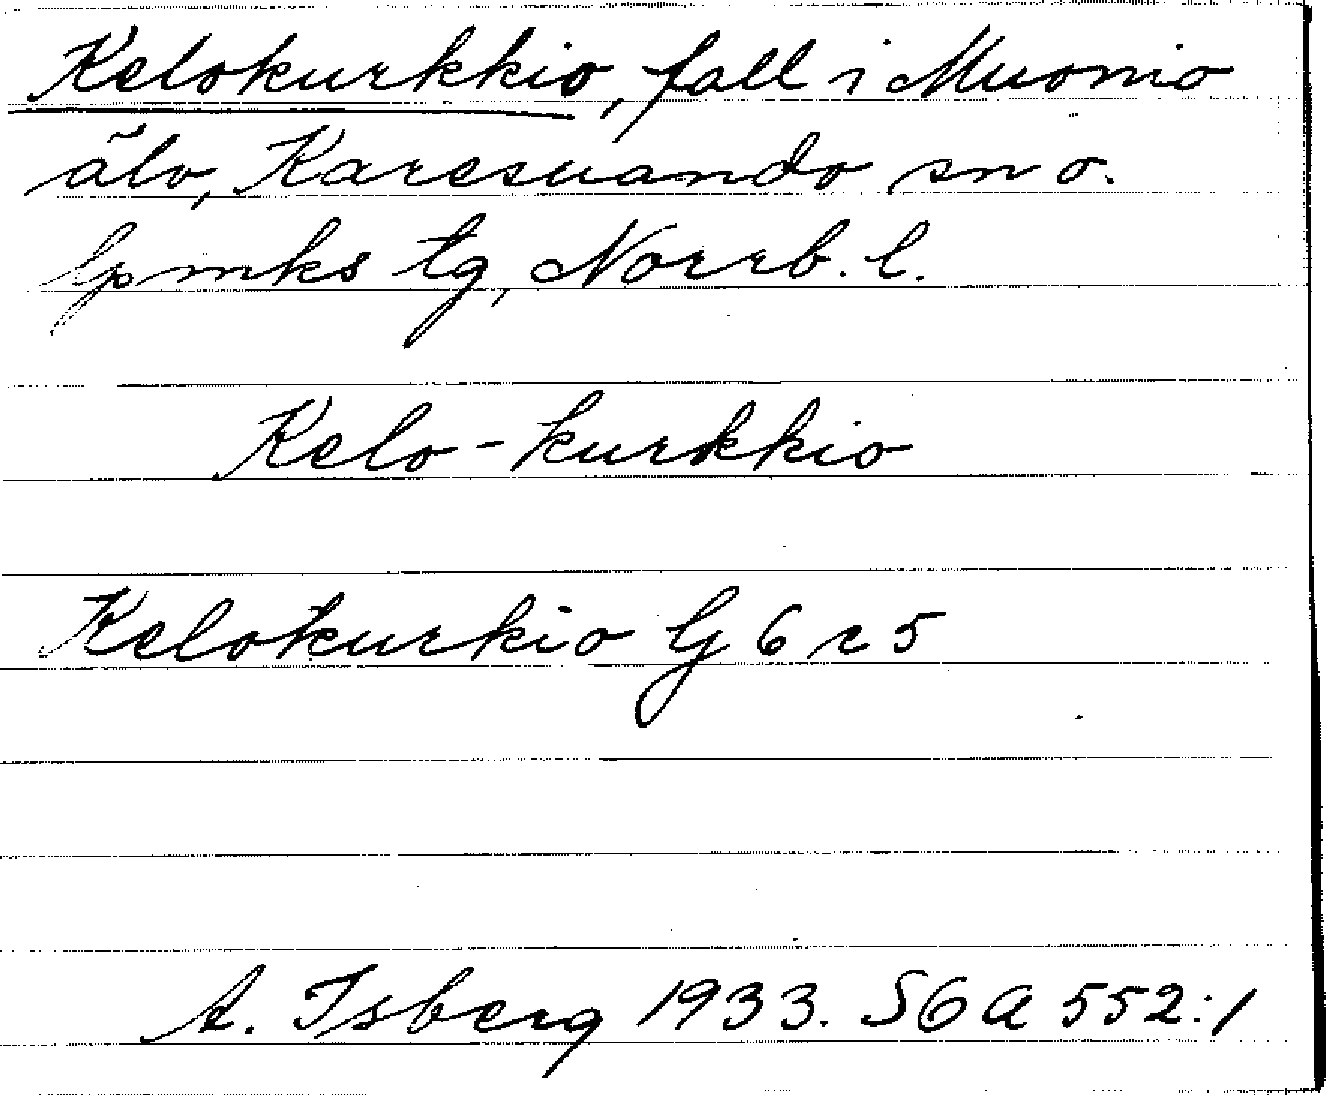 Kelokurkkio, fall i Muonio
älv, Karesuando sn o.
lpmks tg, Norrb. l.
Kelo-kurkkio
Kelokurkio G 6 c 5
A. Isberg 1933. SGA 552:1